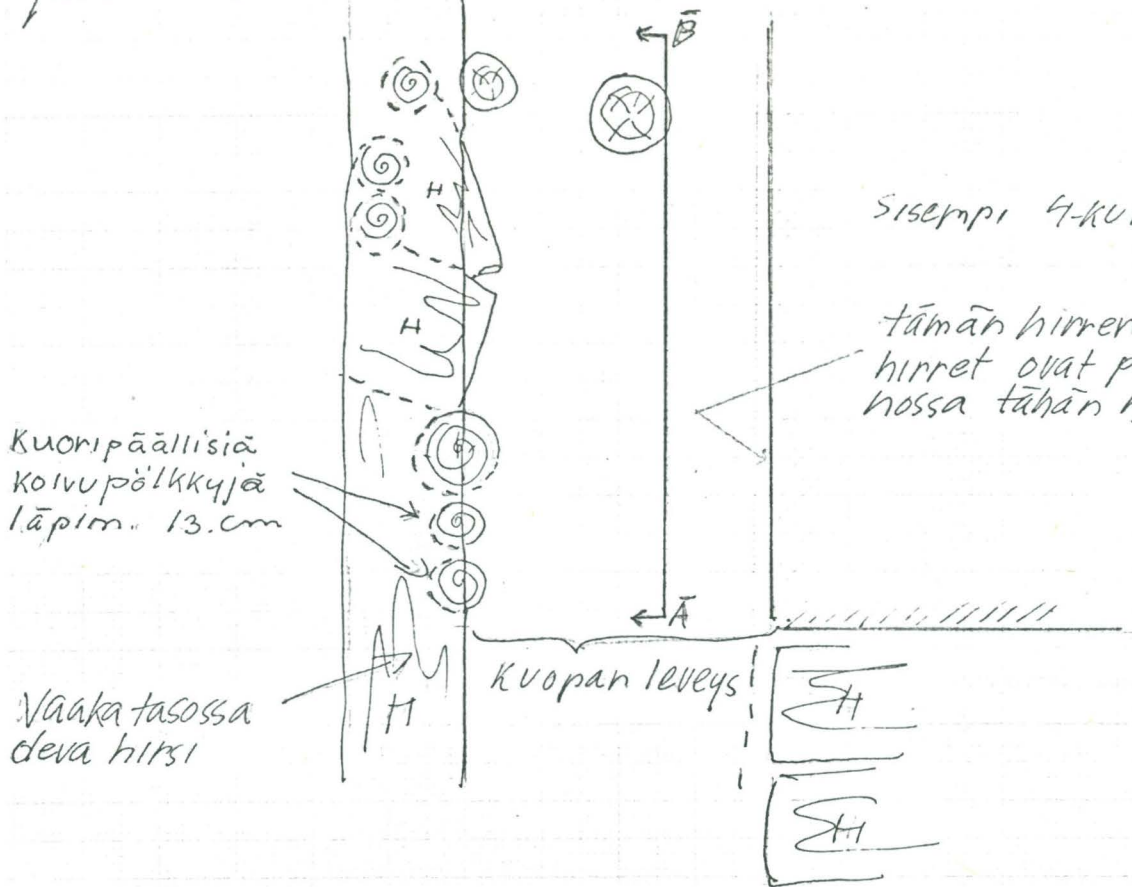 B
H
Sisempi 4-KU
H
tämän hirren
hirret ovat p
hossa tähän h
Kuoripäällisiä
koivupölkkyjä
läpim. 13.cm
A
Kuopan leveys
H
Vaakatasossa
oleva hirsi
H
H